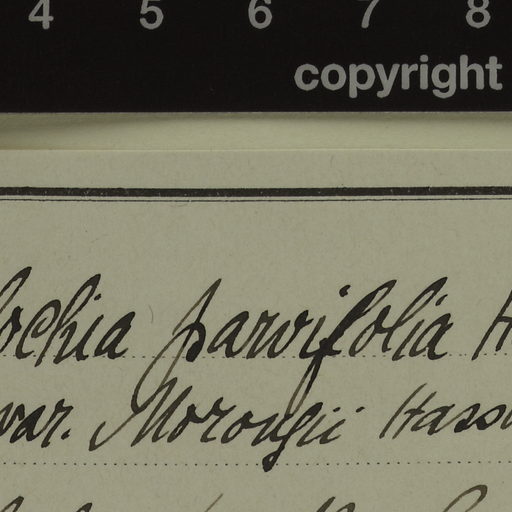 4 5 6 7 8
copyright
ochia parvifolia H
var. Morongii Hass